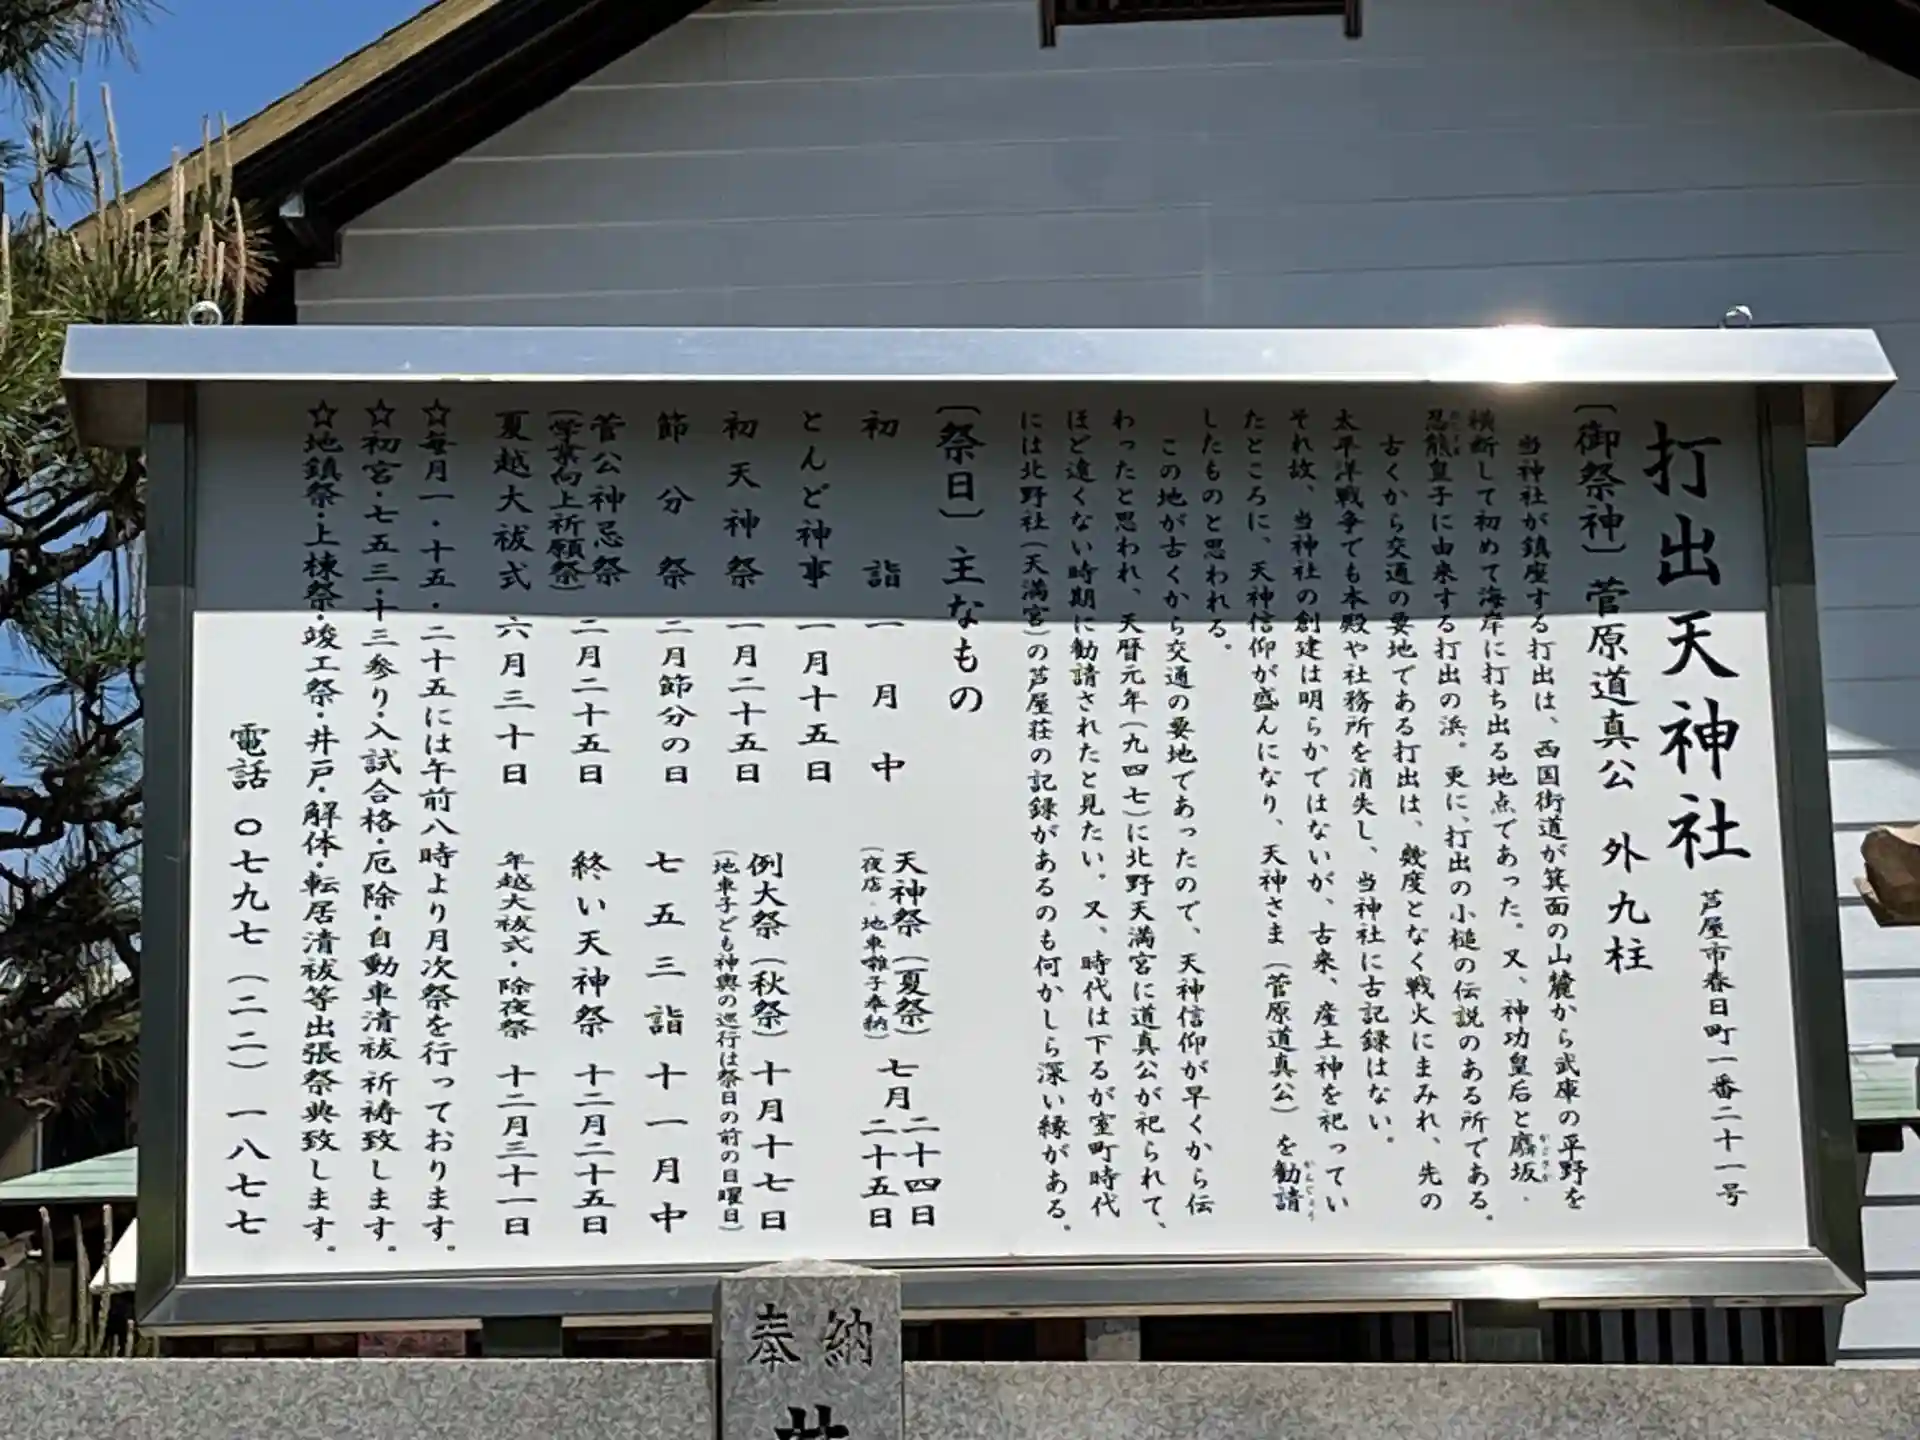 打出天神社 芦屋市春日町一番二十一号
〔御祭神〕菅原道真公 外九柱
当神社が鎮座する打出は、西国街道が箕面の山麓から武庫の平野を
横断して初めて海岸に打ち出る地点であった。又、神功皇后と麛坂・
忍熊皇子に由来する打出の浜。更に、打出の小槌の伝説のある所である。
古くから交通の要地である打出は、幾度となく戦火にまみれ、先の
太平洋戦争でも本殿や社務所を消失し、当神社に古記録はない。
それ故、当神社の創建は明らかではないが、古来、産土神を祀ってい
たところに、天神信仰が盛んになり、天神さま(菅原道真公)を勧請
したものと思われる。
この地が古くから交通の要地であったので、天神信仰が早くから伝
わったと思われ、天暦元年(九四七)に北野天満宮に道真公が祀られて、
ほど遠くない時期に勧請されたと見たい。又、時代は下るが室町時代
には北野社(天満宮)の芦屋荘の記録があるのも何かしら深い縁がある。
〔祭日〕主なもの
初詣 一月中
とんど神事 一月十五日
初天神祭 一月二十五日
節分祭 二月節分の日
菅公神忌祭 二月二十五日
(学業向上祈願祭)
夏越大祓式 六月三十日
天神祭(夏祭) 七月二十四日 二十五日
(夜店・地車雅子奉納)
例大祭(秋祭) 十月十七日
(地車子ども神輿の巡行は祭日の前の日曜日)
七五三詣 十一月中
終い天神祭 十二月二十五日
年越大祓式・除夜祭 十二月三十一日
☆毎月一・十五・二十五には午前八時より月次祭を行っております。
☆初宮・七五三・十三参り・入試合格・厄除・自動車清祓祈祷致します。
☆地鎮祭・上棟祭・竣工祭・井戸・解体・転居清祓等出張祭典致します。
電話 〇七九七(二二)一八七七
奉納